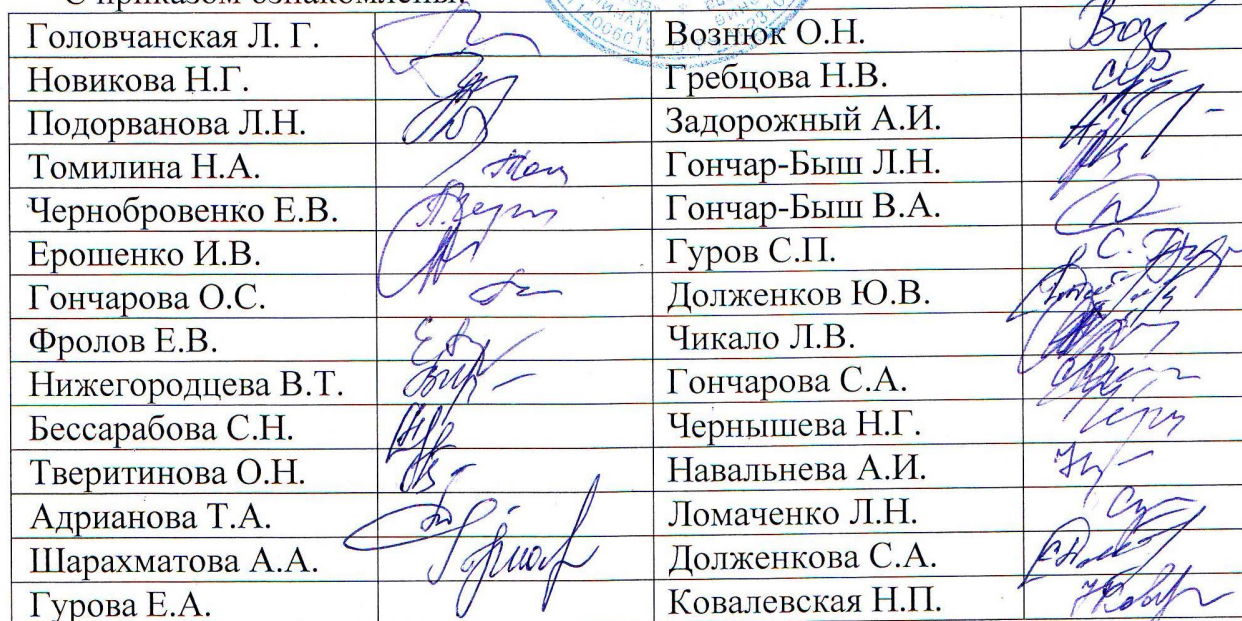 С приказом ознакомлены:
Головчанская Л. Г. Вознюк О.Н.
Новикова Н.Г. Гребцова Н.В.
Подорванова Л.Н. Задорожный А.И.
Томилина Н.А. Гончар-Быш Л.Н.
Чернобровенко Е.В. Гончар-Быш В.А.
Ерошенко И.В. Гуров С.П.
Гончарова О.С. Долженков Ю.В.
Фролов Е.В. Чикало Л.В.
Нижегородцева В.Т. Гончарова С.А.
Бессарабова С.Н. Чернышева Н.Г.
Тверитинова О.Н. Навальнева А.И.
Адрианова Т.А. Ломаченко Л.Н.
Шарахматова А.А. Долженкова С.А.
Гурова Е.А. Ковалевская Н.П.